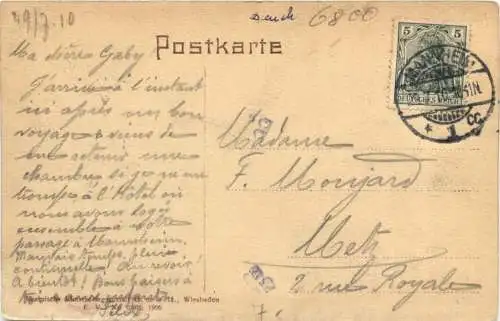 29/7.10
6800
Postkarte
5 5
MANNHEIM
DEUTSCHES REICH
1 CC
Ma chère Gaby
J'arrive à l'instant
ici après un bon
voyage & viens de
me retenir une
chambre
à l'Hôtel où
nous avons logé
ensemble à votre
passage à Mannheim.
Mauvais temps, pluie
continuelle! Au revoir!
A bientôt! Bons baisers à
Madame
F. Moujard
Metz
2 rue Royale
Wiesbaden
1906
7.